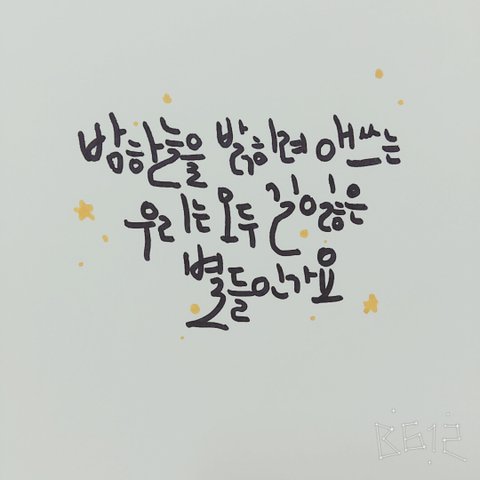 밤하늘을 밝히려 애쓰는
우리는 모두 길잃은
별들인가요
B612